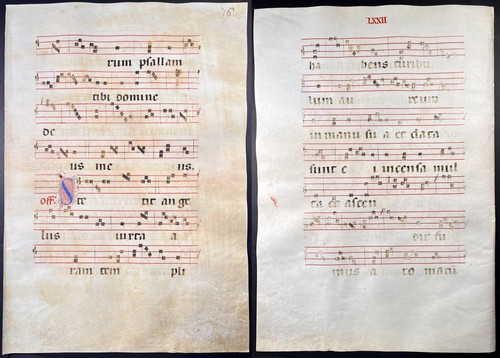 76
rum psallam
tibi domine
de
us me us.
off. Ste tit ang̅e
lus iuxta a
ram tem pli
LXXII
ha bens turibu
lum au reum
in manu su a et data
sunt e i incensa mul
ta et ascen
dit fu
mus a ro matū